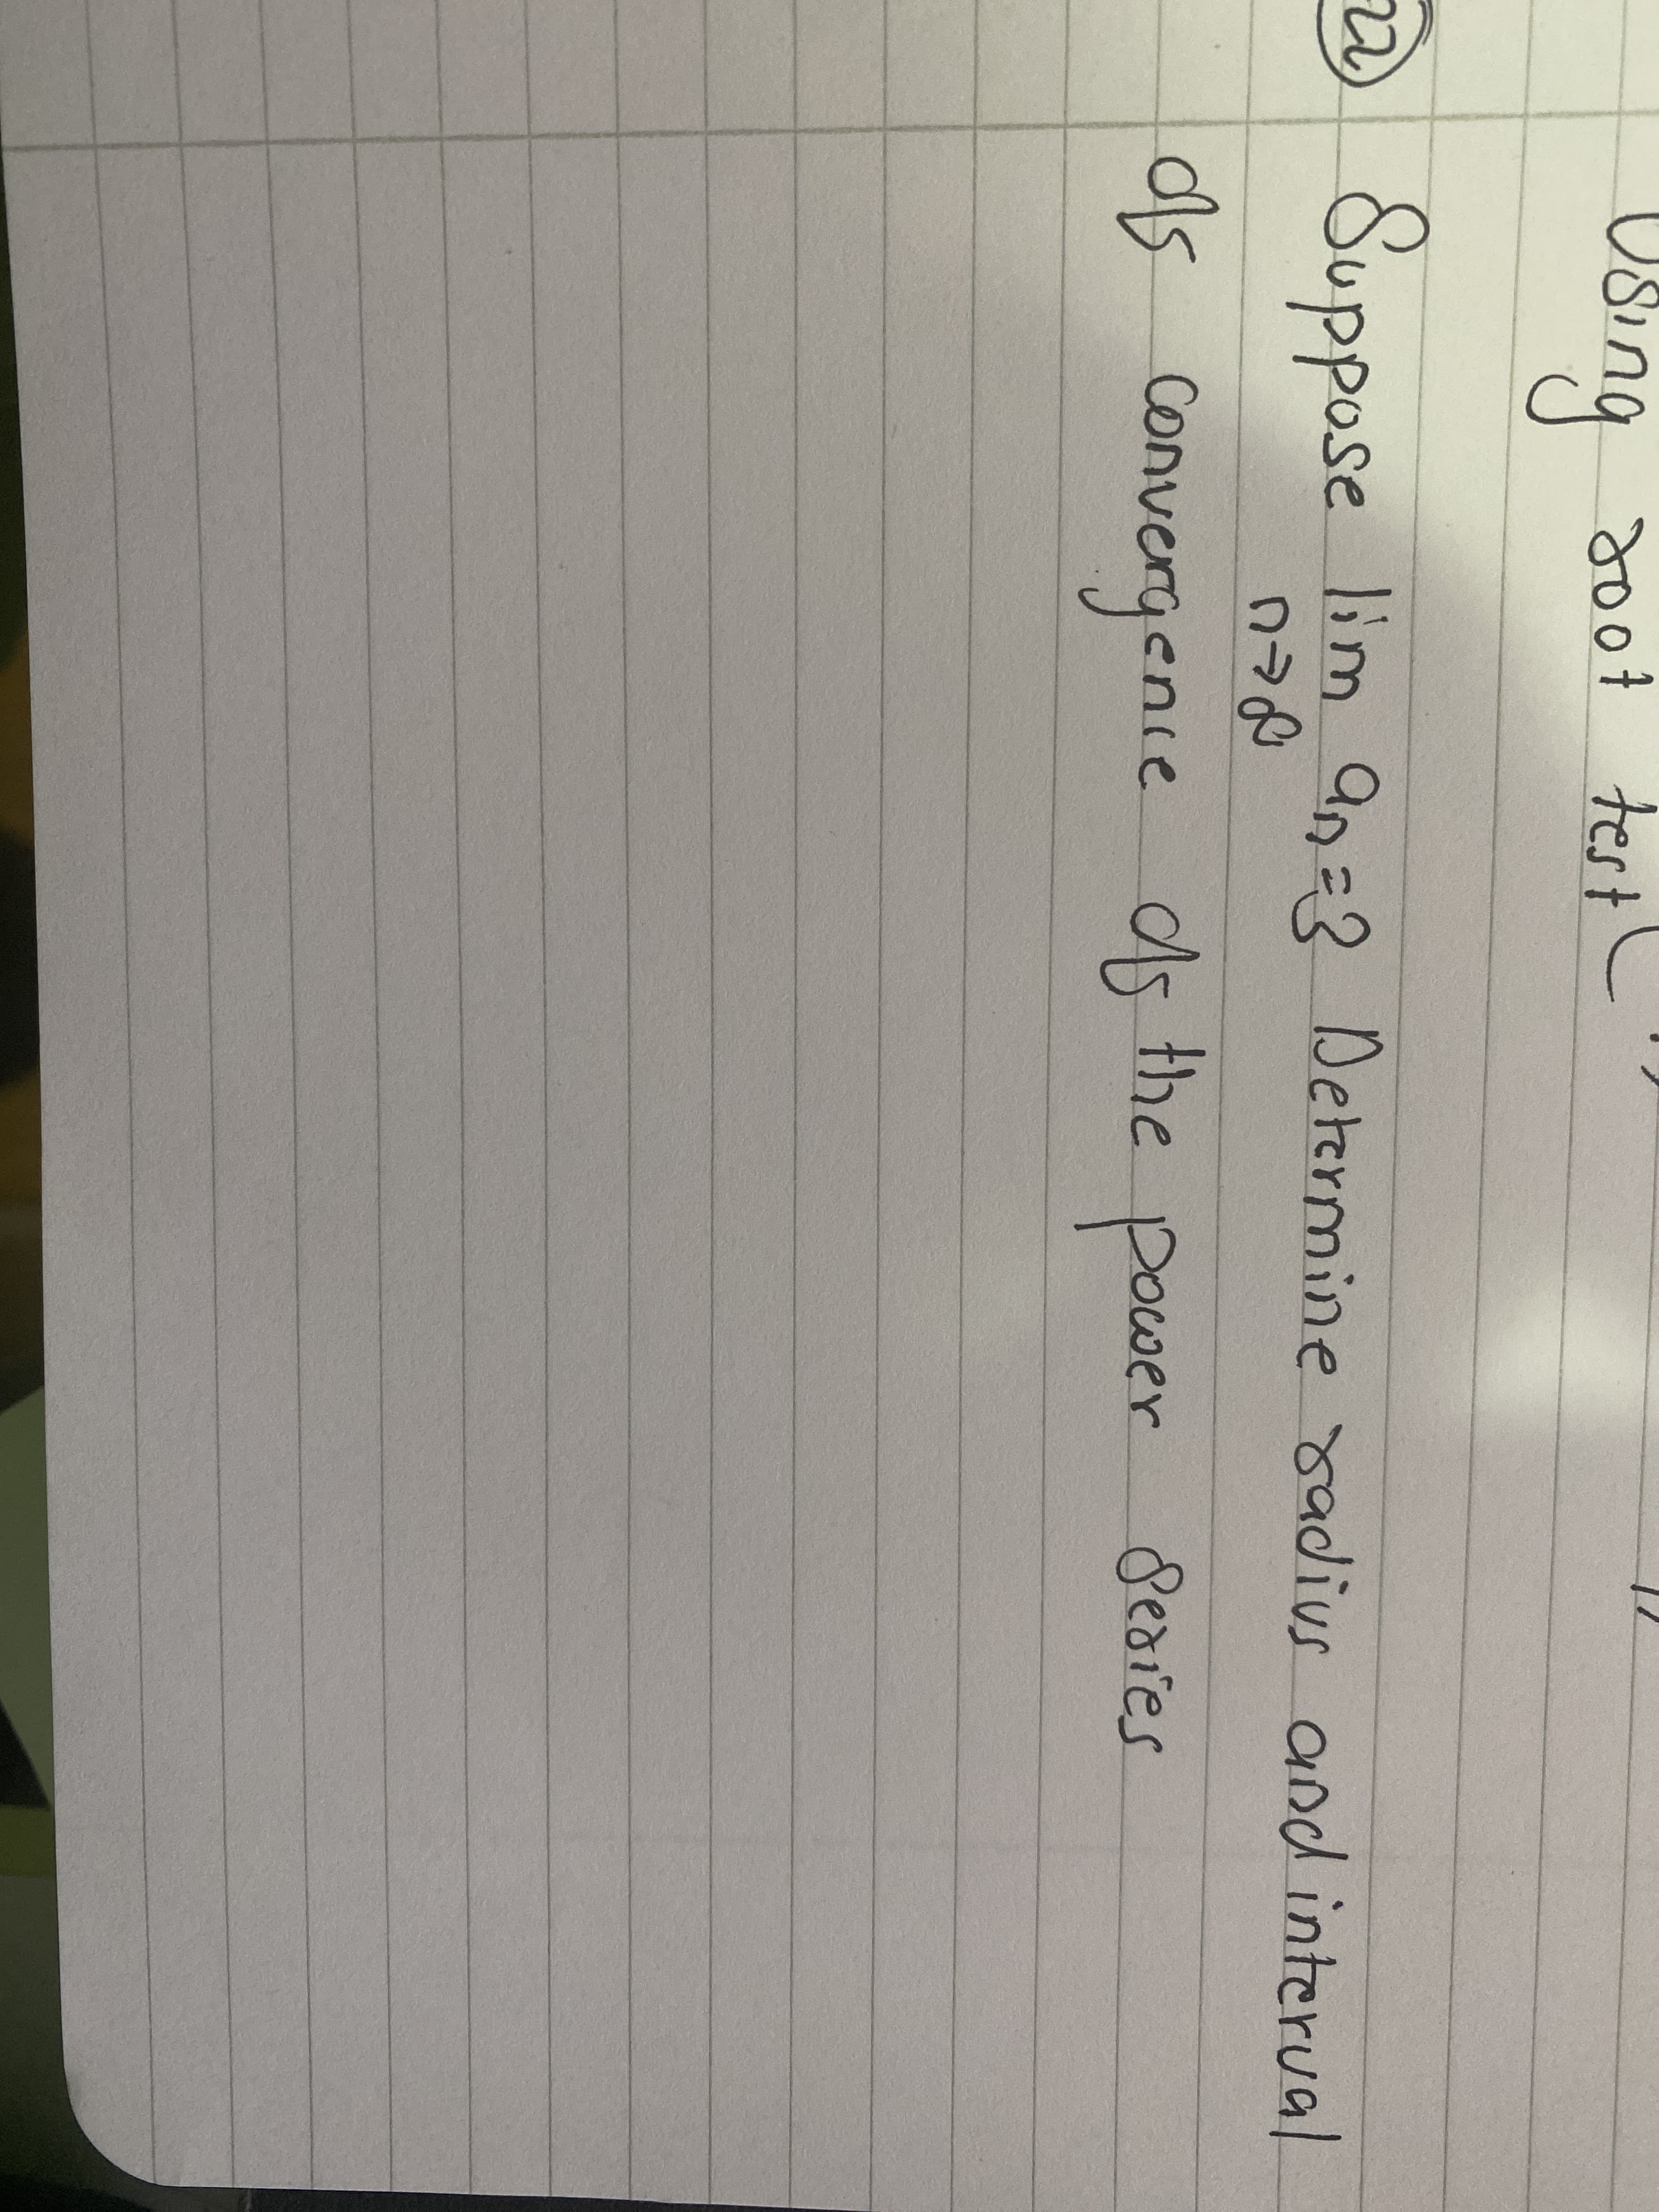 Using root test (
22 Suppose lim an=3 Determine radius and interval
n→∞
of convergence of the power series